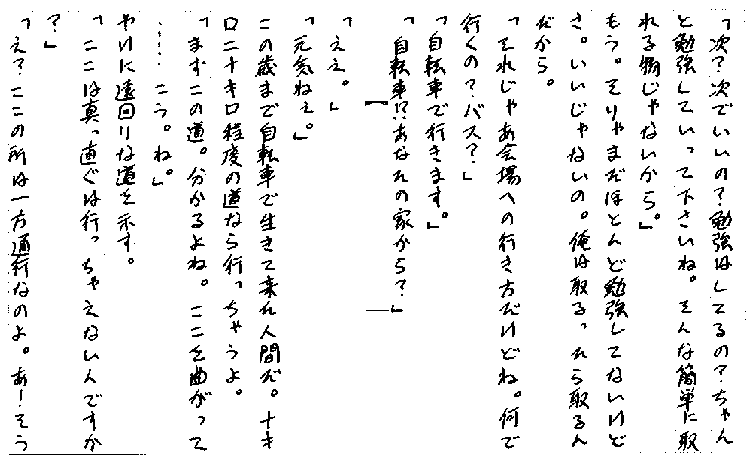 「次？次でいいの？勉強はしてるの？ちゃん
と勉強していって下さいね。そんな簡単に取
れる物じゃないから。」
もう。そりゃまだほとんど勉強してないけど
さ。いいじゃないの。俺は取るったら取るん
だから。
「それじゃあ会場への行き方だけどね。何で
行くの？バス？」
「自転車で行きます。」
「自転車！？あなたの家から？」
「ええ。」
「元気ねぇ。」
この歳まで自転車で生きて来た人間だ。十キ
ロ二十キロ程度の道なら行っちゃうよ。
「まずこの道。分かるよね。ここを曲がって
……こう。ね。」
やけに遠回りな道を示す。
「ここは真っ直ぐは行っちゃえないんですか
？」
「え？ここの所は一方通行なのよ。あーそう